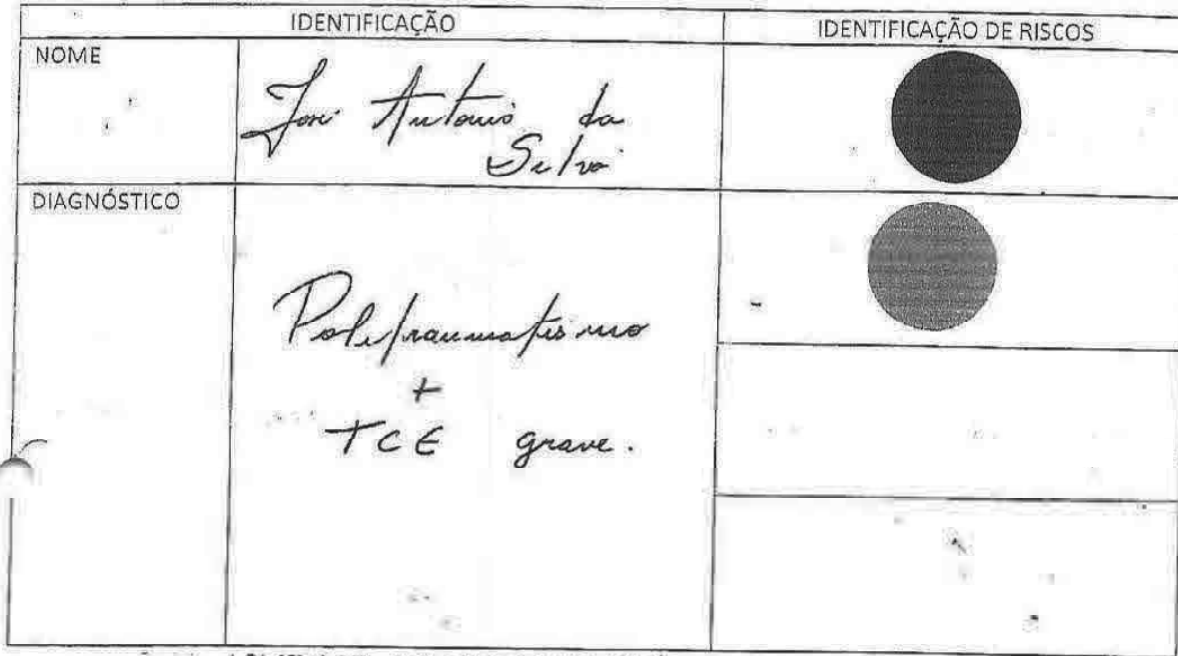 IDENTIFICAÇÃO
IDENTIFICAÇÃO DE RISCOS
NOME
José Antonio da
Silva
DIAGNÓSTICO
Politraumatismo
+
TCE grave.